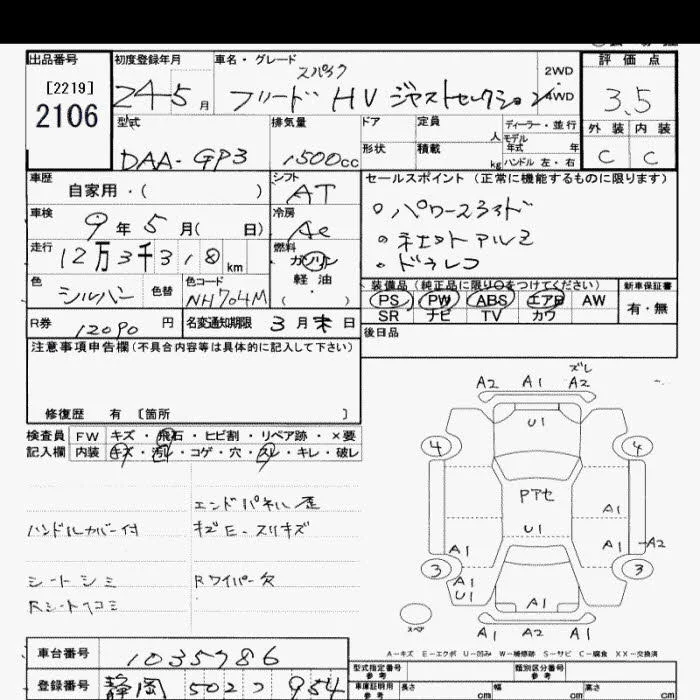 出品番号
[2219]
2106
初度登録年月
24 5 月
車名・グレード
スパイク
フリード HV ジャストセレクション
2WD
4WD
評価点
3.5
外装 内装
C C
型式
DAA-GP3
排気量
1500cc
ドア
形状
定員
人
積載
kg
ディーラー・並行
モデル
年式 年
ハンドル 左・右
車歴
自家用・( )
シフト
AT
セールスポイント (正常に機能するものに限ります)
○パワースライド
○社外アルミ
○ドラレコ
車検
9年5月( 日)
冷房
AC
走行
12万3千318km
燃料
ガソリン
軽油
( ・ )
色
シルバー
色替
色コード
NH704M
装備品(純正品に限り○をつけてください)
PS PW ABS エアB AW
SR ナビ TV カワ
新車保証書
有・無
R券
12090 円
名変通知期限 3月末日
後日品
注意事項申告欄(不具合内容等は具体的に記入して下さい)
修復歴 有 〔箇所 〕
検査員
記入欄
FW キズ・飛石・ヒビ割・リペア跡・×要
内装 キズ・汚れ・コゲ・穴・スレ・キレ・破レ
エンドパネル歪
ハンドルカバー付
キズE・スリキズ
シートシミ
Rワイパー欠
Rシートヘコミ
ズレ
A2 A1 A2
U1
4 4
Pアセ
A1
U1
A1 A1 A2
3 3
A1
U1
A1
スペア
A1 A2 A1
A-キズ E-エクボ U-凹み W-補修跡 S-サビ C-腐食 XX-交換済
車台番号
1035786
型式指定番号
参考
類別区分番号
参考
登録番号
静岡 502 つ 954
車庫証明用
参考
長さ cm
幅 cm
高さ cm